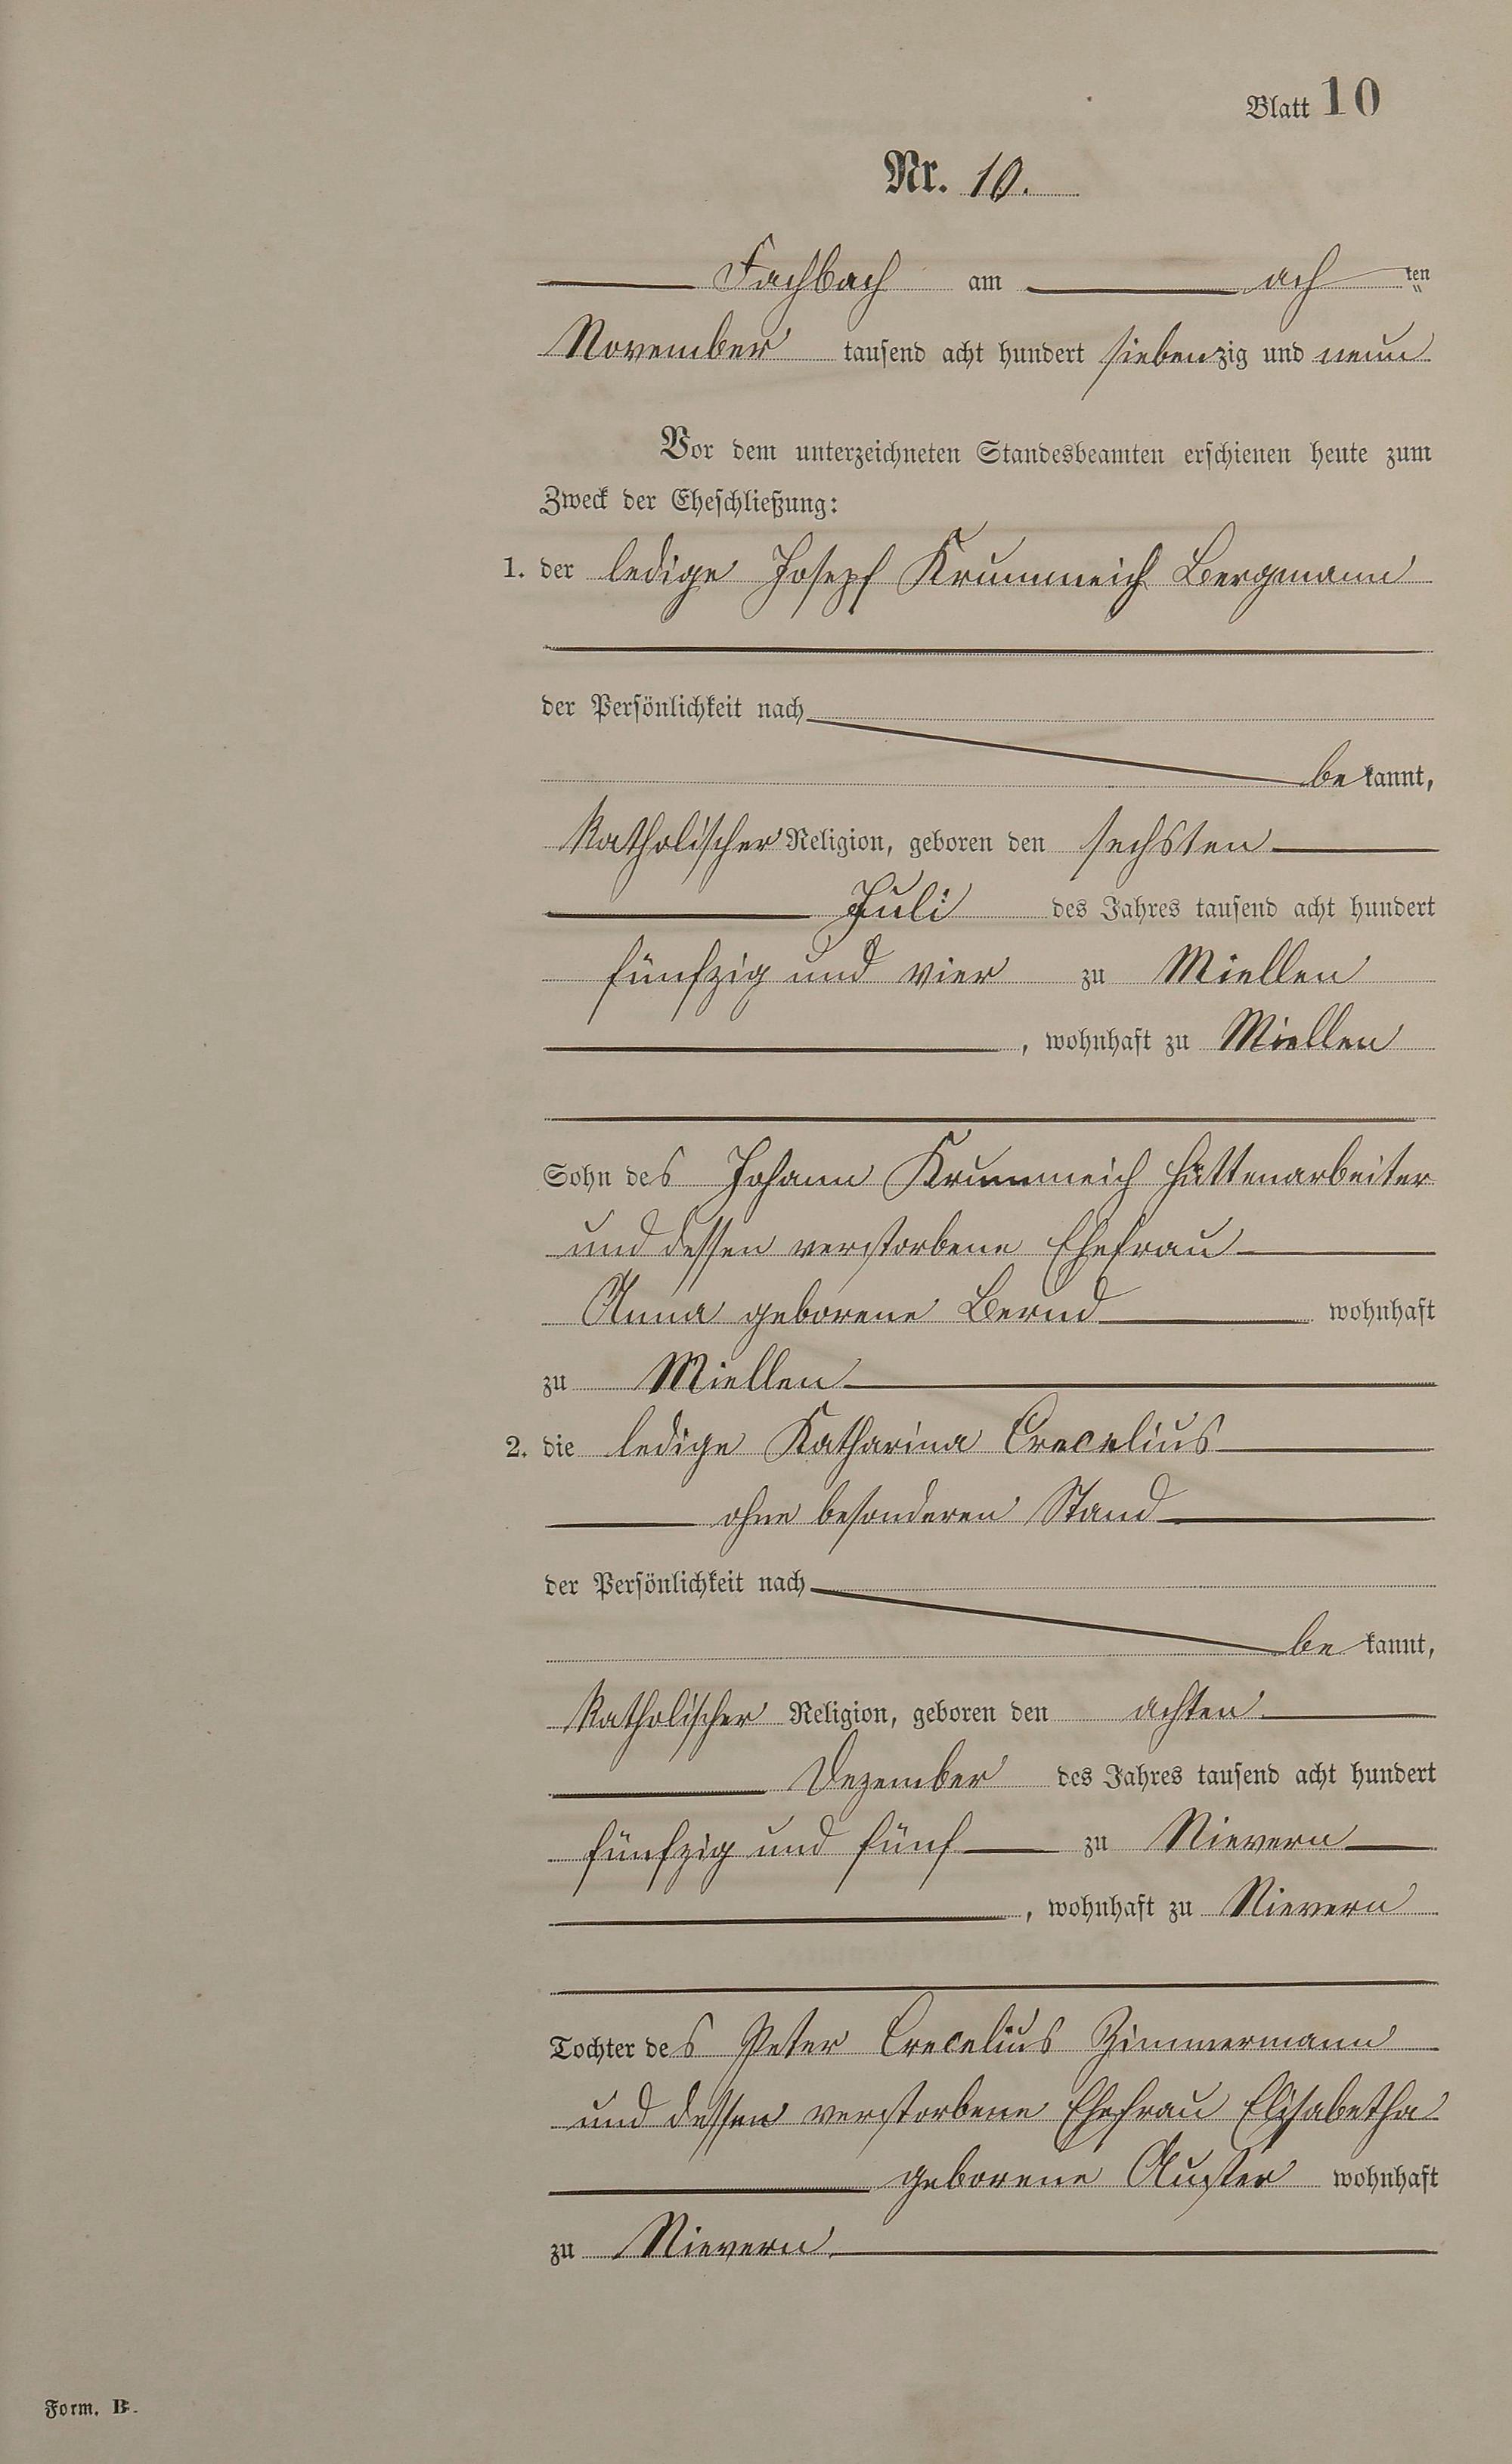 Blatt 10
Nr. 10.
Fachbach am ach ten
November tausend acht hundert siebenzig und neun
Vor dem unterzeichneten Standesbeamten erschienen heute zum
Zweck der Eheschließung:
1. der ledige Josepf Krummeich Bergmann
der Persönlichkeit nach
be kannt,
katholischer Religion, geboren den sechsten
Juli des Jahres tausend acht hundert
fünfzig und vier zu Miellen
, wohnhaft zu Miellen
Sohn des Johann Krummeich Hüttenarbeiter
und dessen verstorbene Ehefrau
Anna geborene Bernd wohnhaft
zu Miellen
2. die ledige Katharina Crecelius
ohne besonderen Stand
der Persönlichkeit nach
be kannt,
katholischer Religion, geboren den achten
Dezember des Jahres tausend acht hundert
fünfzig und fünf zu Nievern
, wohnhaft zu Nievern
Tochter des Peter Crecelius Zimmermann
und dessen verstorbene Ehefrau Elisabetha
geborene Auster wohnhaft
zu Nievern
Form. B.